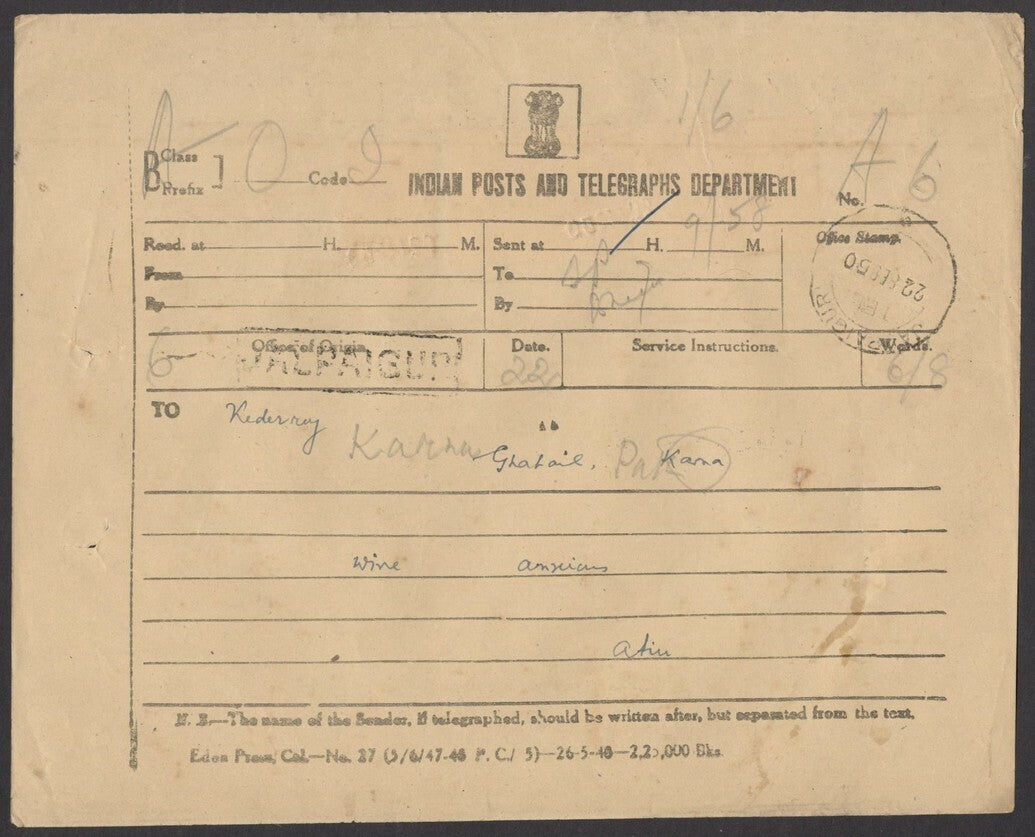 1/6
Class
B Prefix ] O Code
INDIAN POSTS AND TELEGRAPHS DEPARTMENT
A 6
No.
Recd. at H. M.
From
By
Sent at H. M.
9/58
To
By
Office Stamp.
22 DEC 50
JALPAIGURI
Office of Origin
6
JALPAIGURI
Date.
22
Service Instructions.
Words.
6/8
TO Kederroy
Karna Ghatail, Pak Karna
Wire anxious
Atin
N. B.—The name of the Sender, if telegraphed, should be written after, but separated from the text.
Eden Press, Cal.—No. 27 (5/6/47-48 P. C./ 5)—26-5-48—2,25,000 Bks.